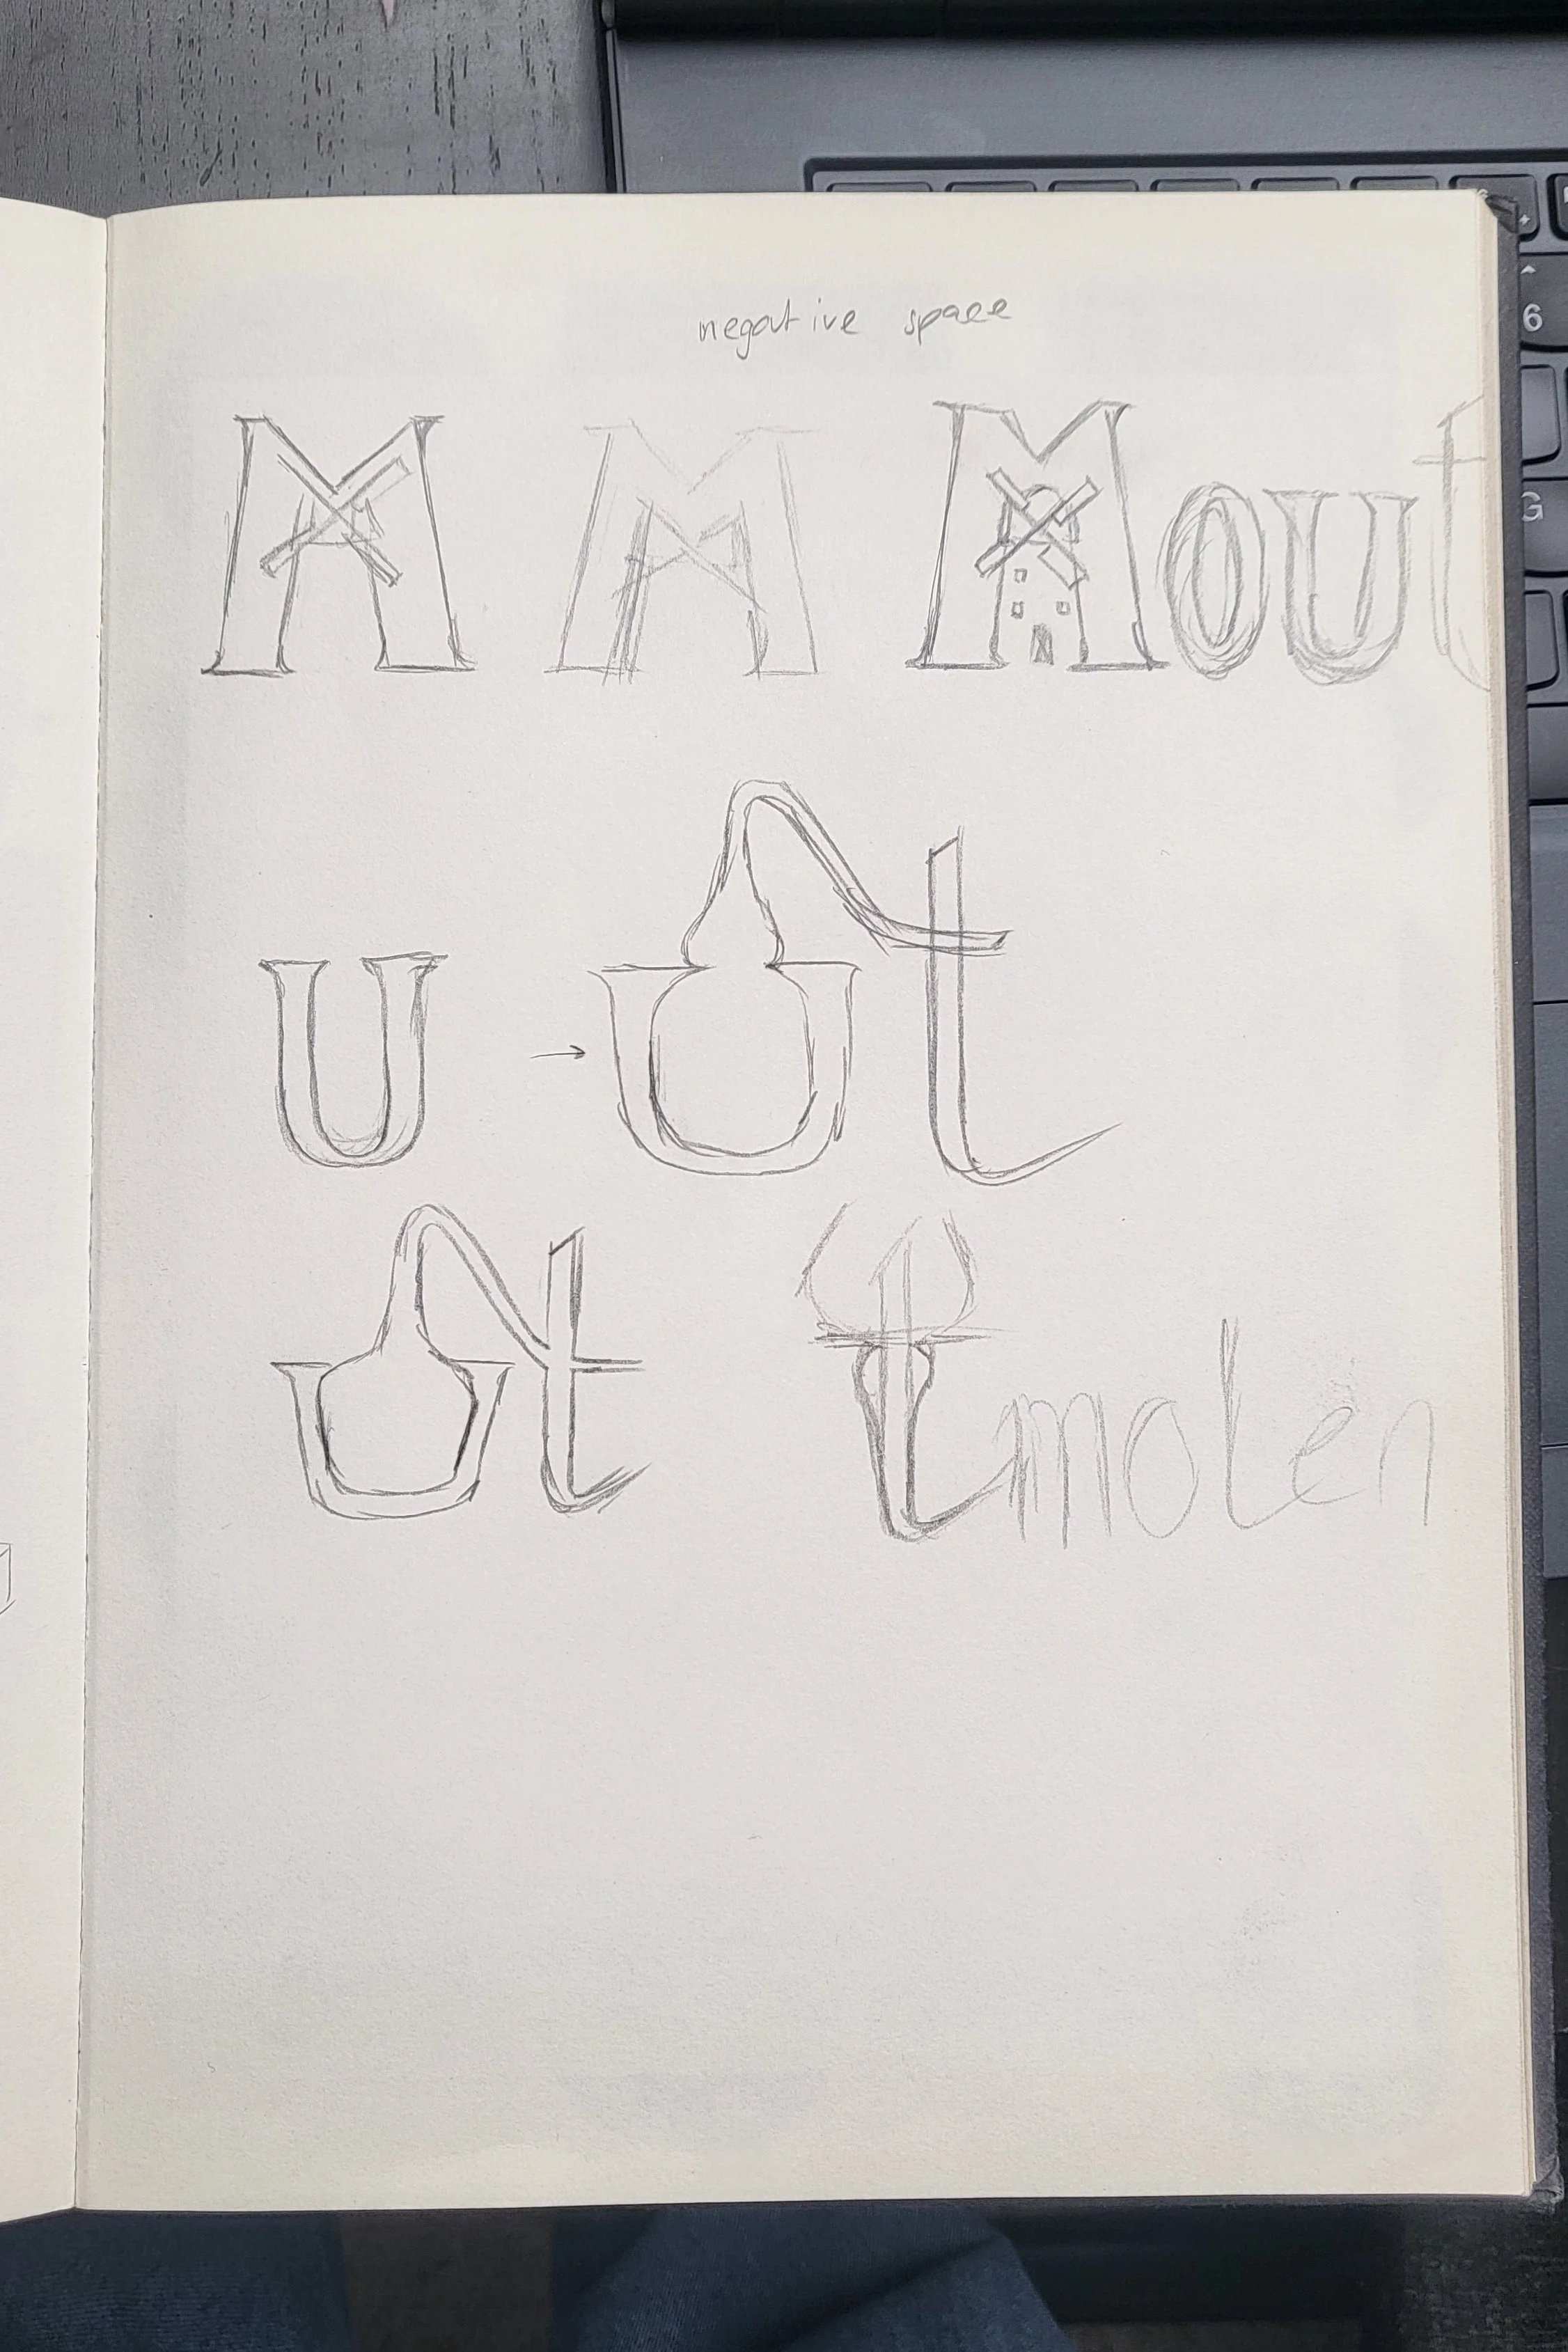 negative space
M M Mout
u → ut
ut tmolen
6
G